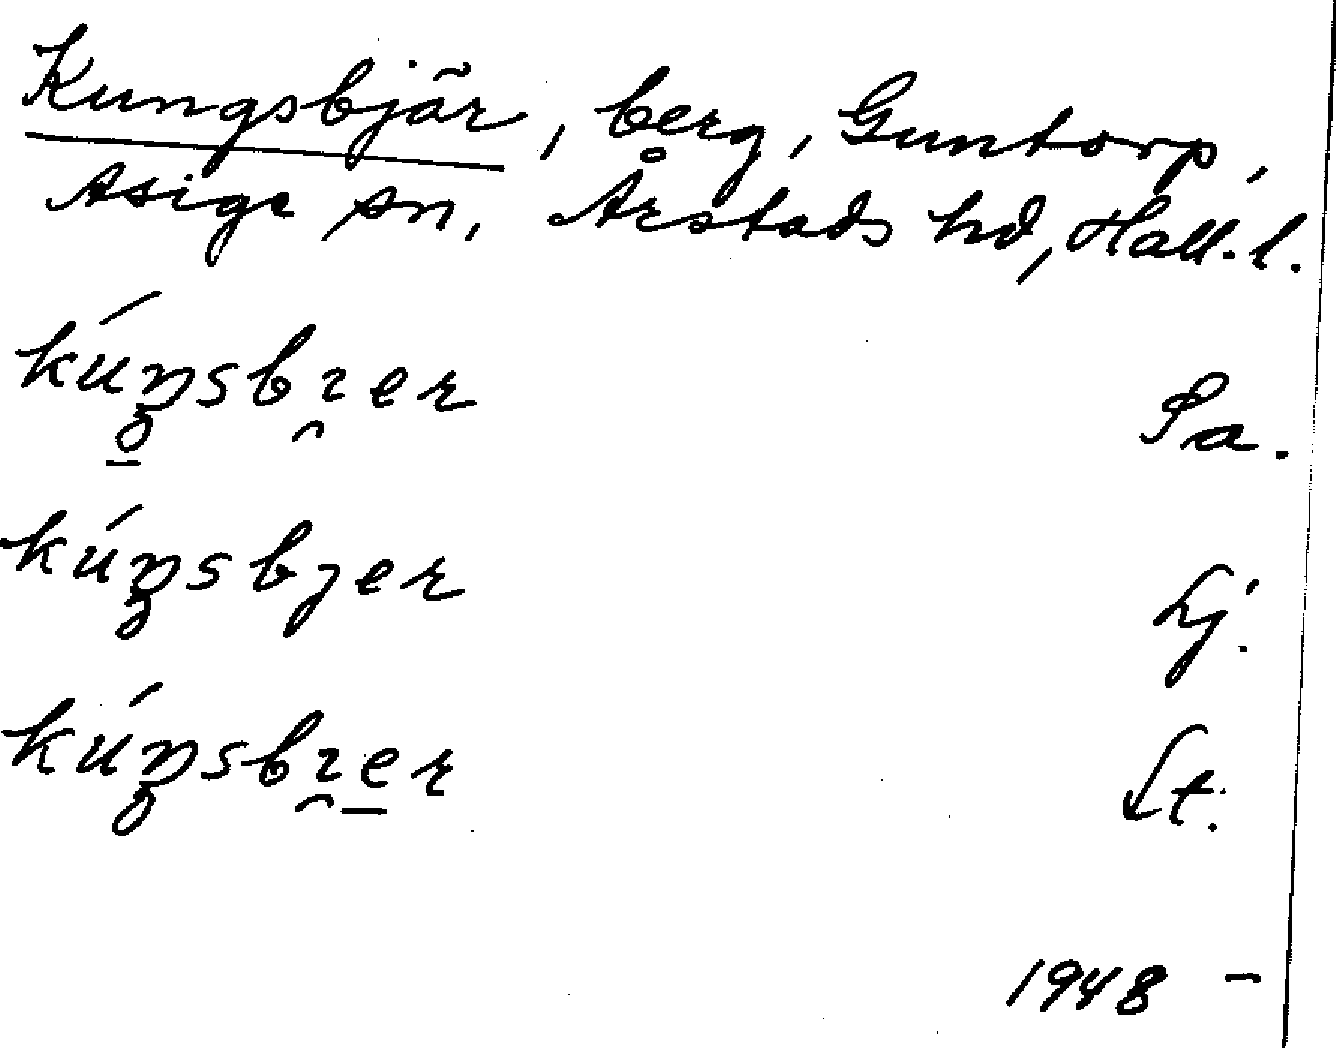 Kungsbjär, berg, Guntorp,
Asige sn, Årstads hd, Hall. l.
kúŋsbı̯er Pa.
kúŋsbȷer Lj.
kúŋsbı̯e̲r St.
1948 –